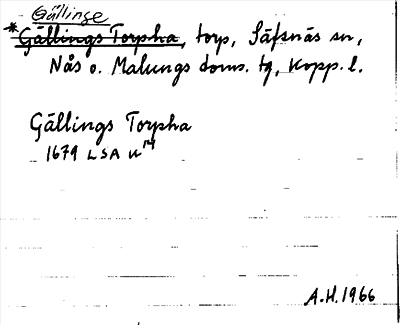 Gällinge
*Gällings Torpha, torp, Säfsnäs sn,
Nås o. Malungs doms. tg, Kopp. l.
Gällings Torpha
1679 LSA U 14
A.H. 1966